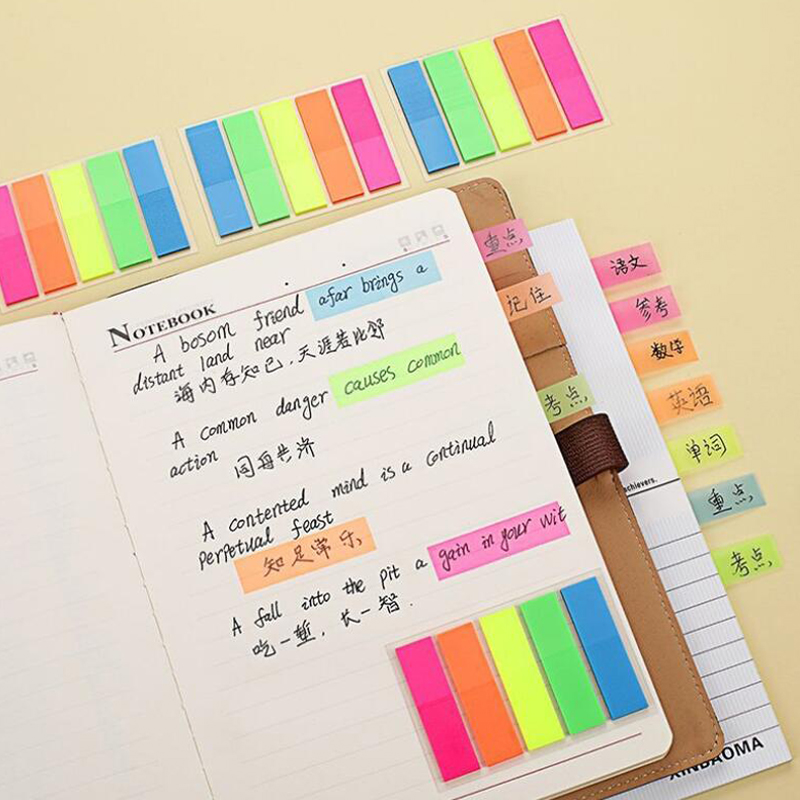 NOTEBOOK
A bosom friend afar brings a
distant land near
海内存知己，天涯若比邻
A common danger causes common
action 同舟共济
A contented mind is a continual
perpetual feast
知足常乐
A fall into the pit a gain in your wit
吃一堑，长一智.
重点
记住
考点
语文
参考
数学
英语
单词
重点
考点
achievers.
XINBAOMA